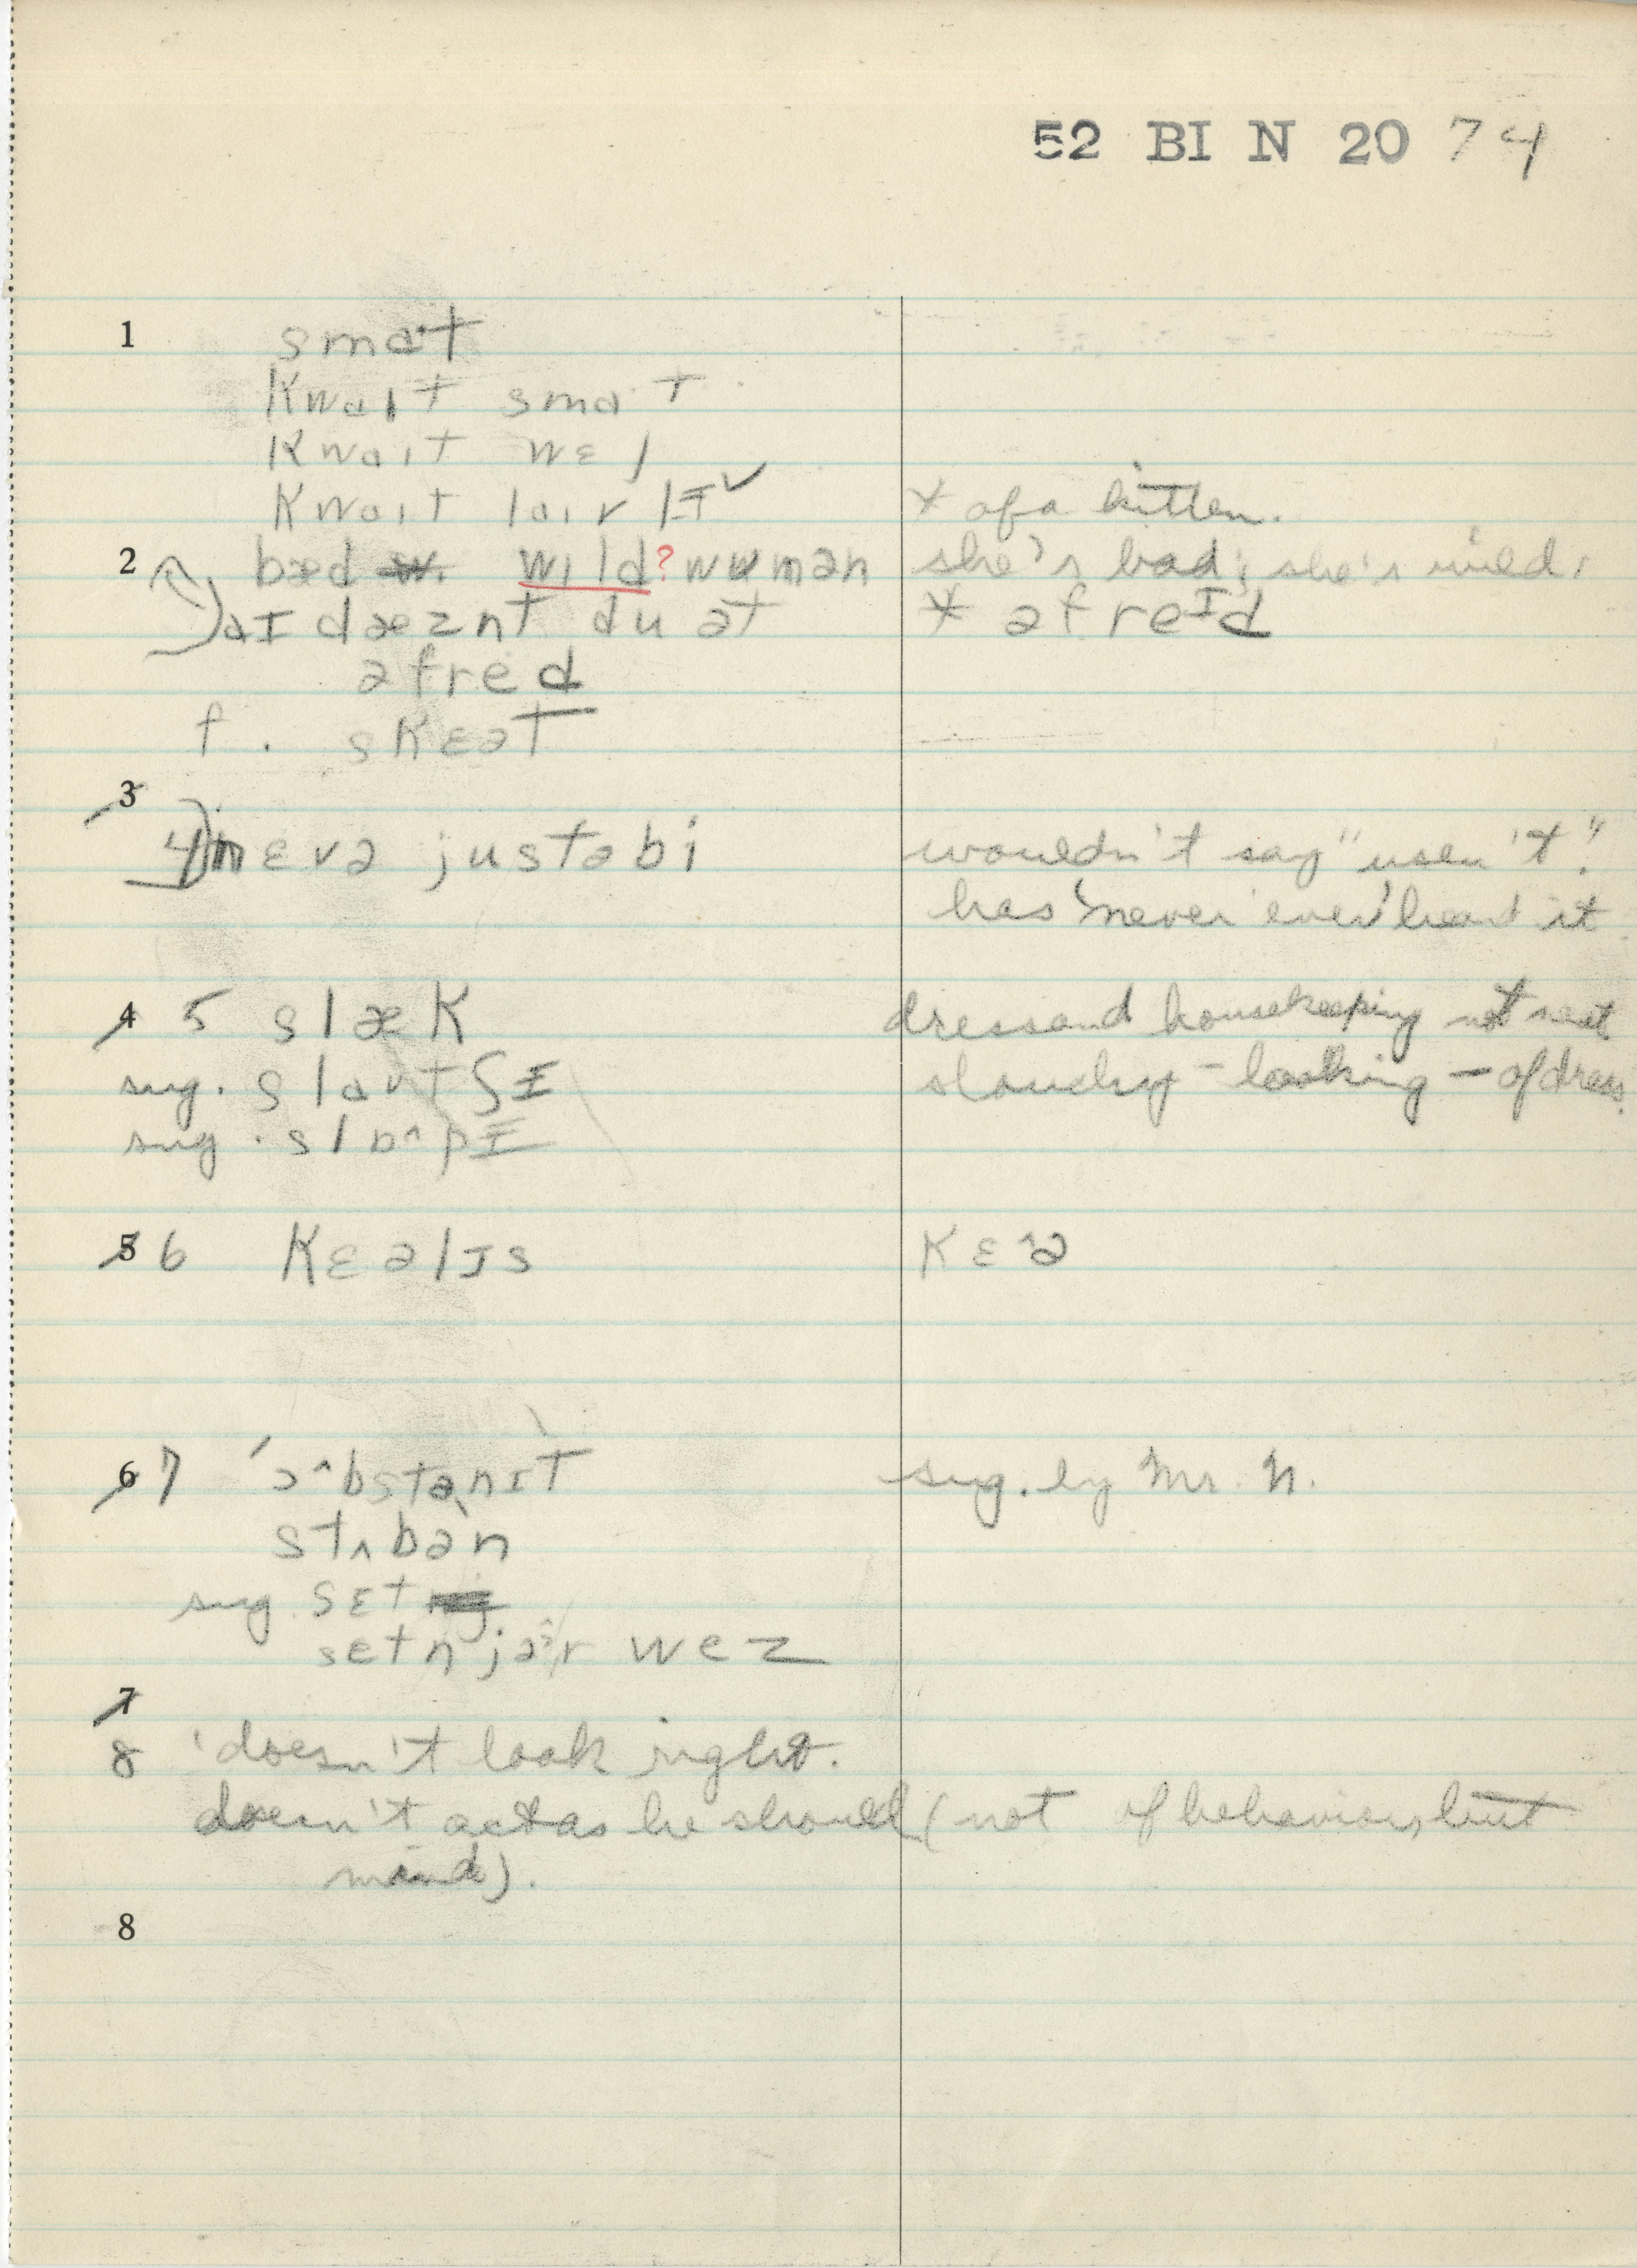 52 BI N 20 74
1 smaˑt
kwaɪt smaˑt
kwaɪt wɛl
kwaɪt laɪvlɪ ✓ * of a kitten.
2 bæd w. wɪld? wumən she's bad; she's wild.
aɪ dæznt du ət * əfreɪd
əfred
f. skɛət
3
4) nɛvə justəbi wouldn't say "usen't".
has 'never ever' heard it
4 5 slæk dress and housekeeping not neat
sug. slaʊtʃɪ slouchy-looking - of dress.
sug. slɒ^pɪ
5 6 kɛəlɪs kɛ^ə
6 7 'ɔ^bstənɪt sug. by Mr. N.
stʌbən
sug. sɛt
setn jə^r wez
7
8 'doesn't look right.
doesn't act as he should (not of behavior, but
mind).
8